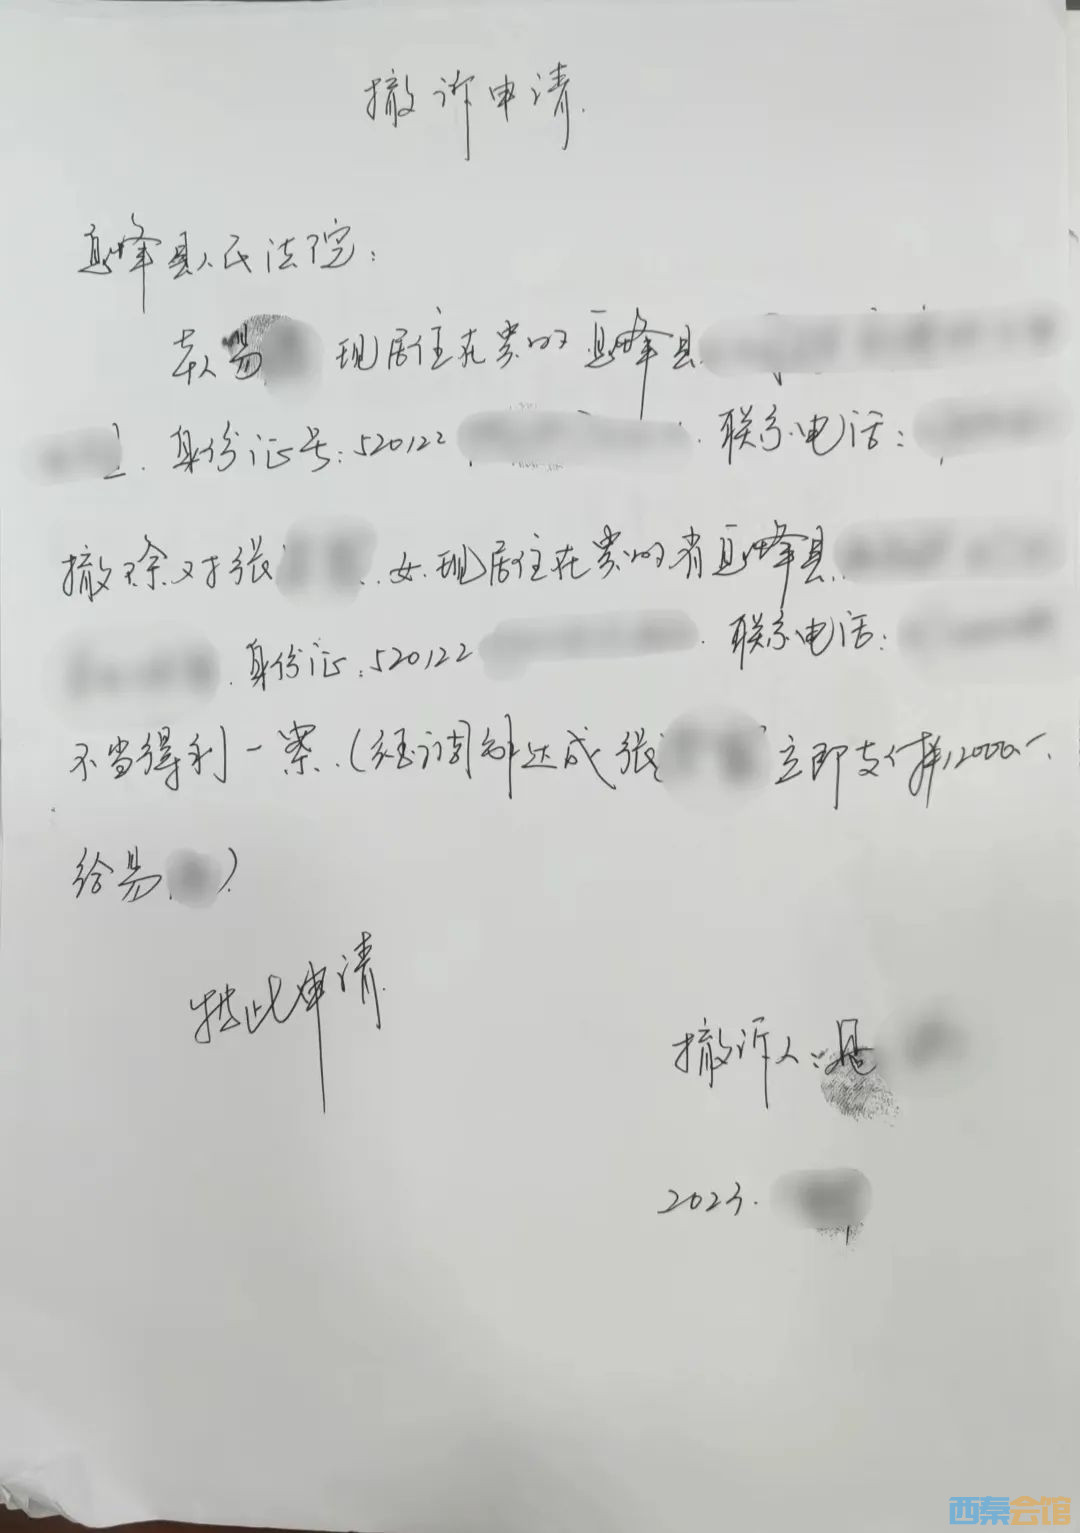 撤诉申请.
息烽县人民法院:
本人易 现居住在贵州 息烽县
. 身份证号:520122 . 联系电话:
撤除对张 . 女.现居住在贵州省息烽县
. 身份证:520122 . 联系电话:
不当得利一案.(经调解达成张 立即支付 12000
给易 )
特此申请
撤诉人:易
2023.
西秦会馆